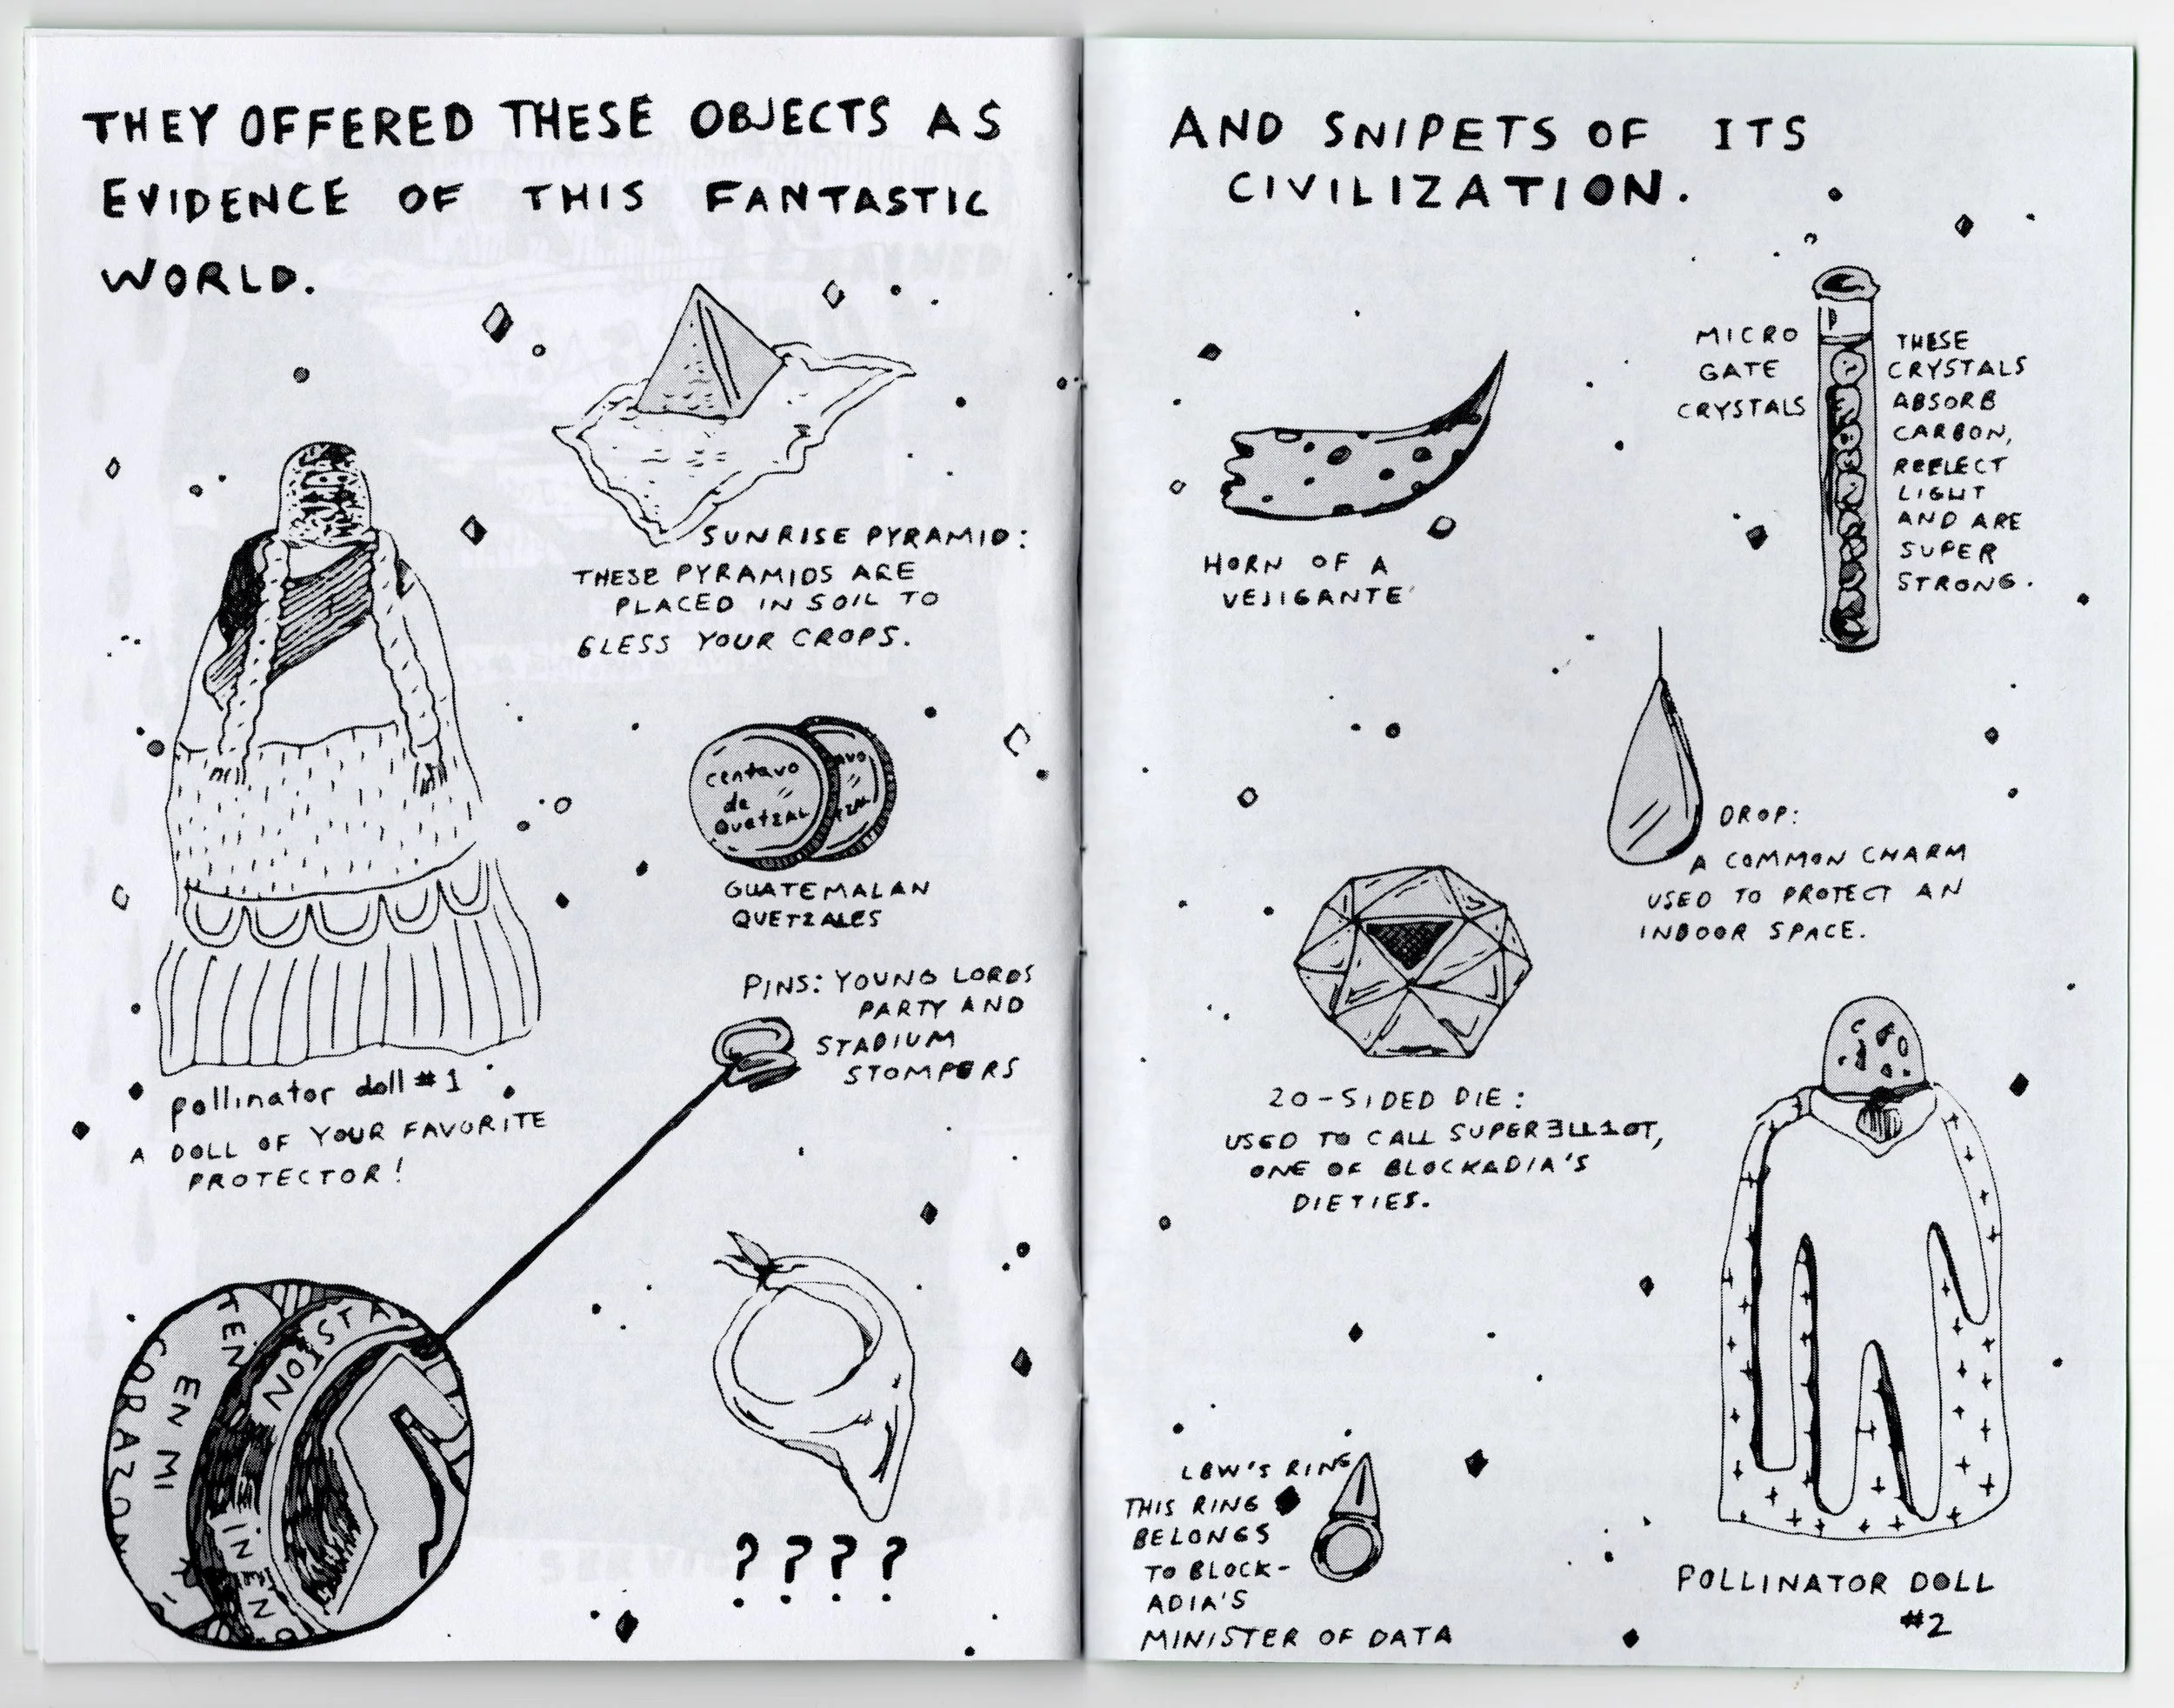 THEY OFFERED THESE OBJECTS AS
EVIDENCE OF THIS FANTASTIC
WORLD.
SUNRISE PYRAMID:
THESE PYRAMIDS ARE
PLACED IN SOIL TO
BLESS YOUR CROPS.
centavo
de
QUETZAL
AVO
ZAL
GUATEMALAN
QUETZALES
PINS: YOUNG LORDS
PARTY AND
STADIUM
STOMPERS
pollinator doll #1
A DOLL OF YOUR FAVORITE
PROTECTOR!
TEN
EN MI
CORAZON
????
AND SNIPETS OF ITS
CIVILIZATION.
HORN OF A
VEJIGANTE
MICRO
GATE
CRYSTALS
THESE
CRYSTALS
ABSORB
CARBON,
REFLECT
LIGHT
AND ARE
SUPER
STRONG.
DROP:
A COMMON CHARM
USED TO PROTECT AN
INDOOR SPACE.
20-SIDED DIE:
USED TO CALL SUPERƎLL1OT,
ONE OF BLOCKADIA'S
DIETIES.
LBW'S RING
THIS RING
BELONGS
TO BLOCK-
ADIA'S
MINISTER OF DATA
POLLINATOR DOLL
#2